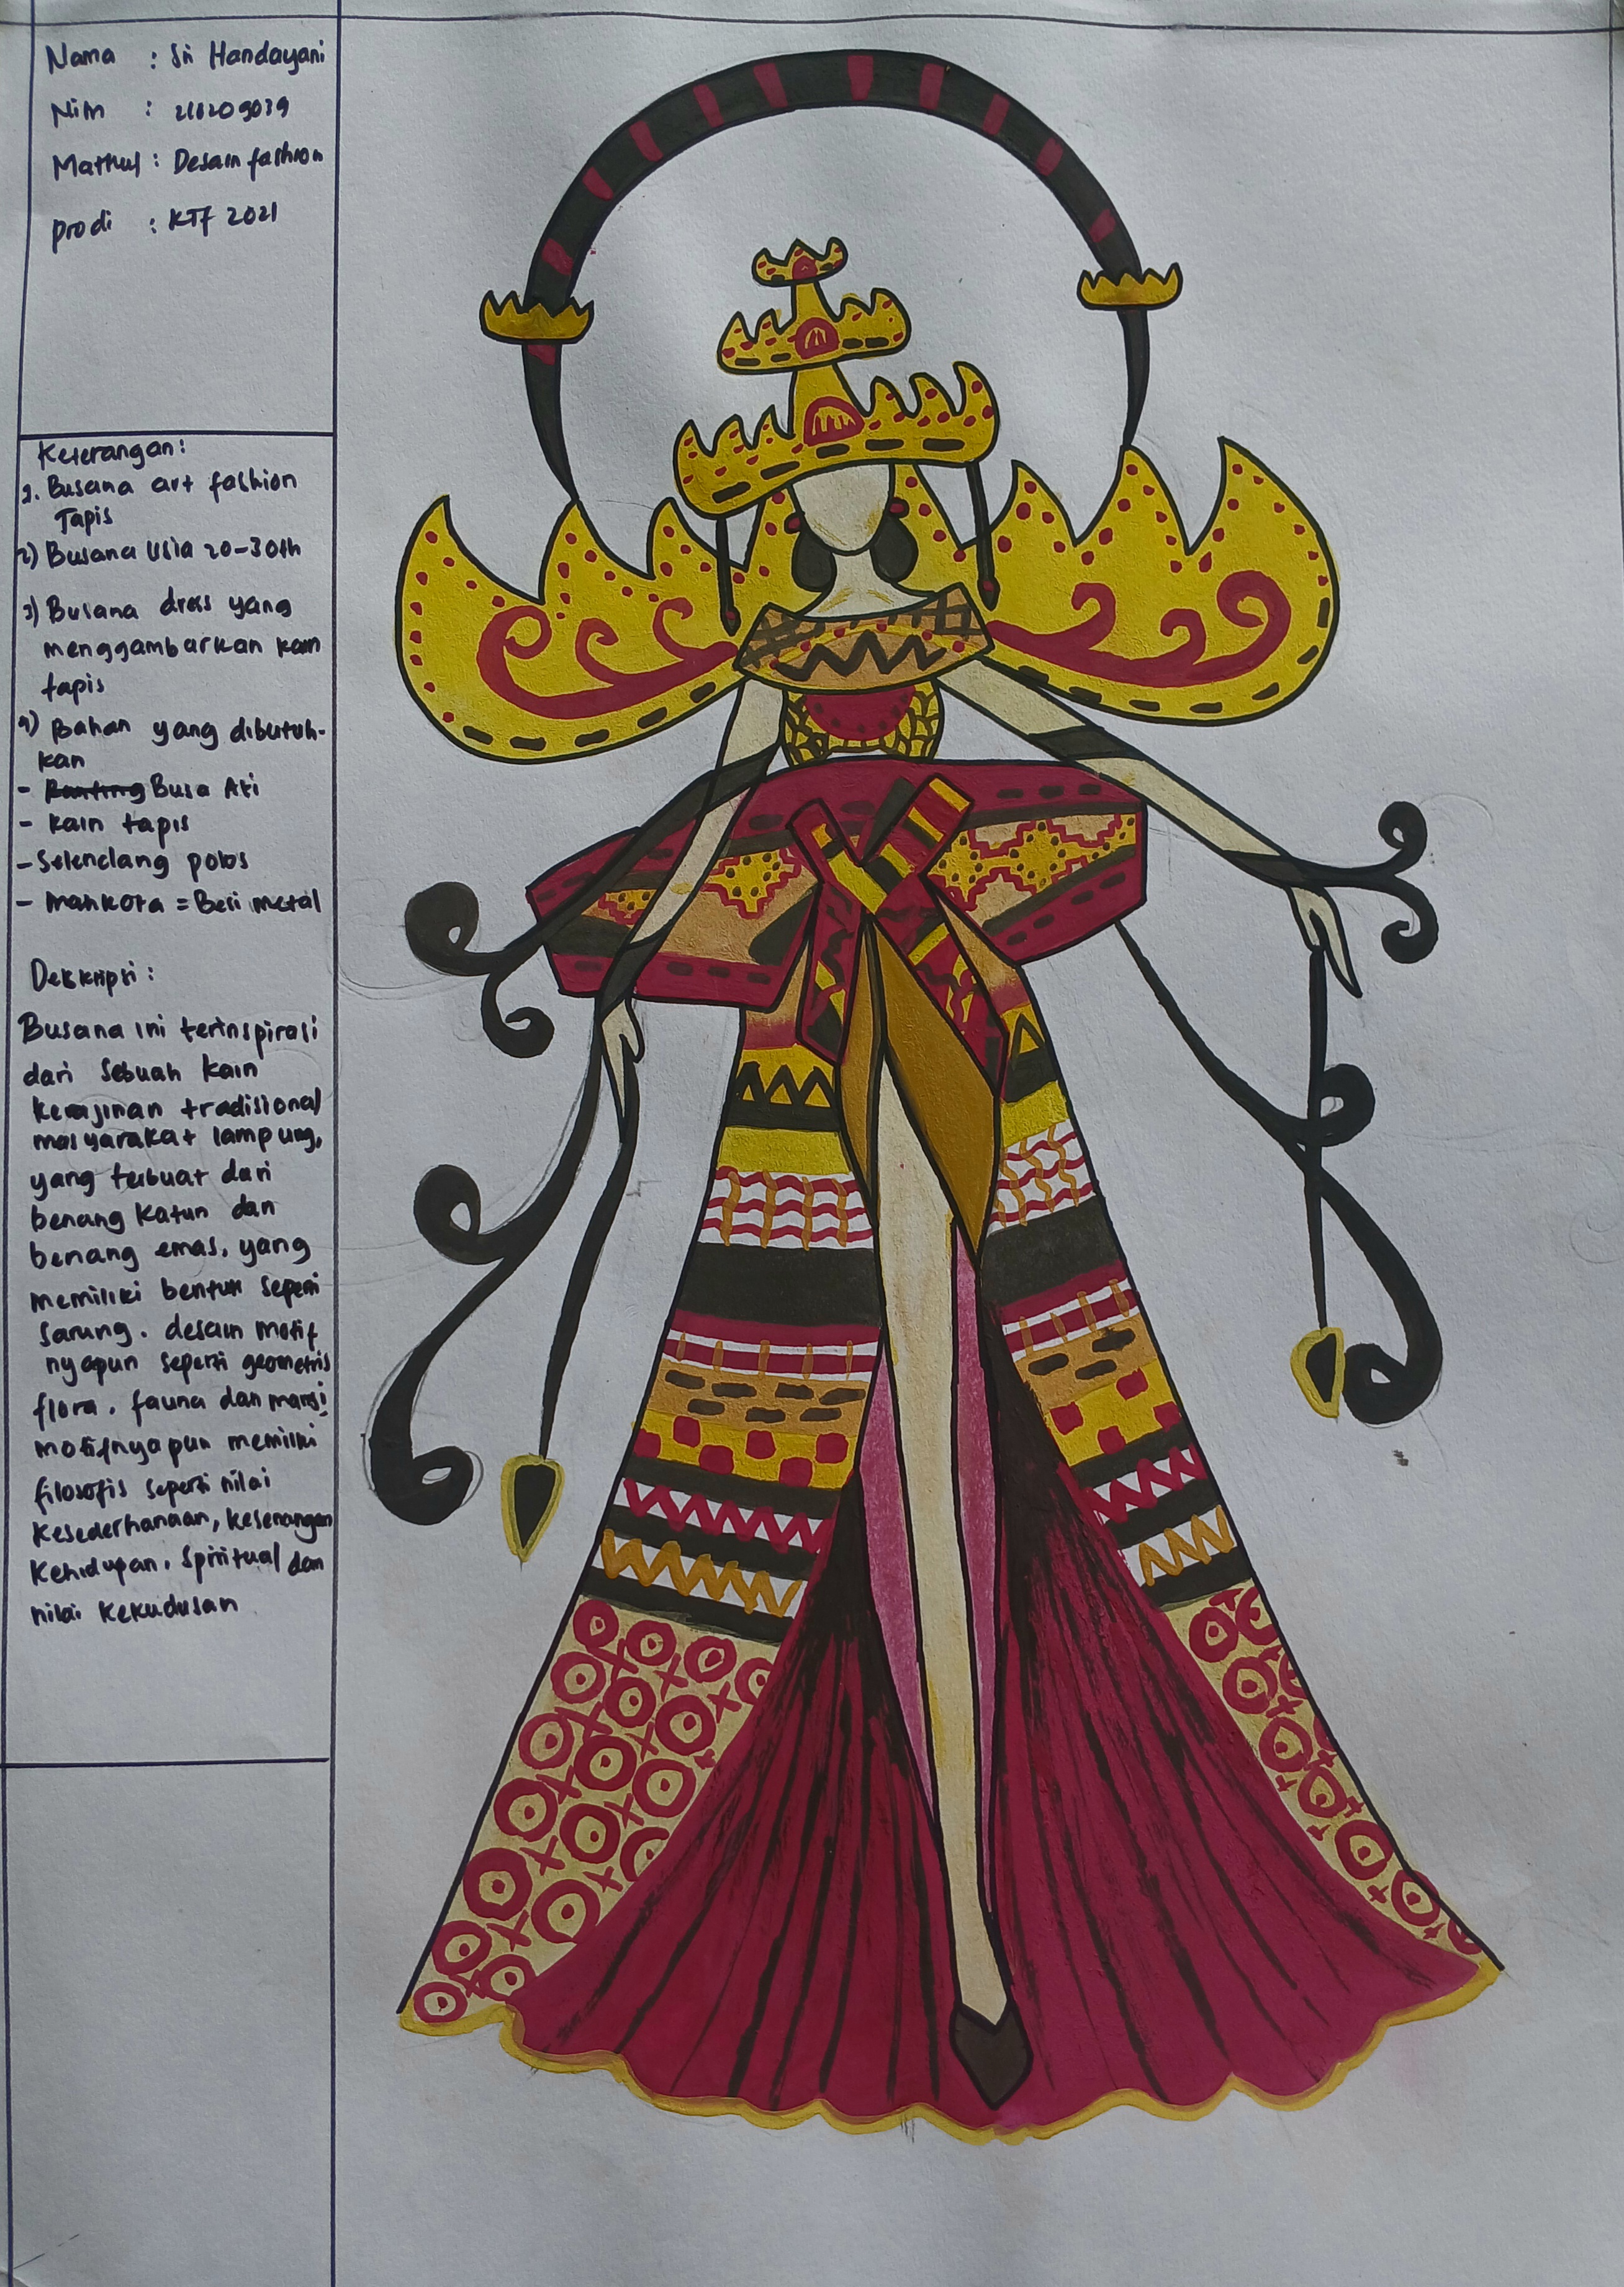 Nama : Sri Handayani
Nim : 216209039
Matkul : Desain fashion
prodi : KTF 2021
Keterangan:
1. Busana art fashion
Tapis
2) Busana Usia 20-30th
3) Busana dress yang
menggambarkan kain
tapis
4) Bahan yang dibutuh-
kan
- Ranting Busa Ati
- Kain tapis
- Selendang polos
- Mahkota = Besi metal
Deskripsi :
Busana ini terinspirasi
dari sebuah kain
kerajinan tradisional
masyarakat lampung,
yang terbuat dari
benang katun dan
benang emas. yang
memiliki bentuk seperti
sarung. desain motif
nyapun seperti geometris
flora, fauna dan
motifnyapun memiliki
filosofis seperti nilai
kesederhanaan, kesenangan
kehidupan, spiritual dan
nilai kekudusan